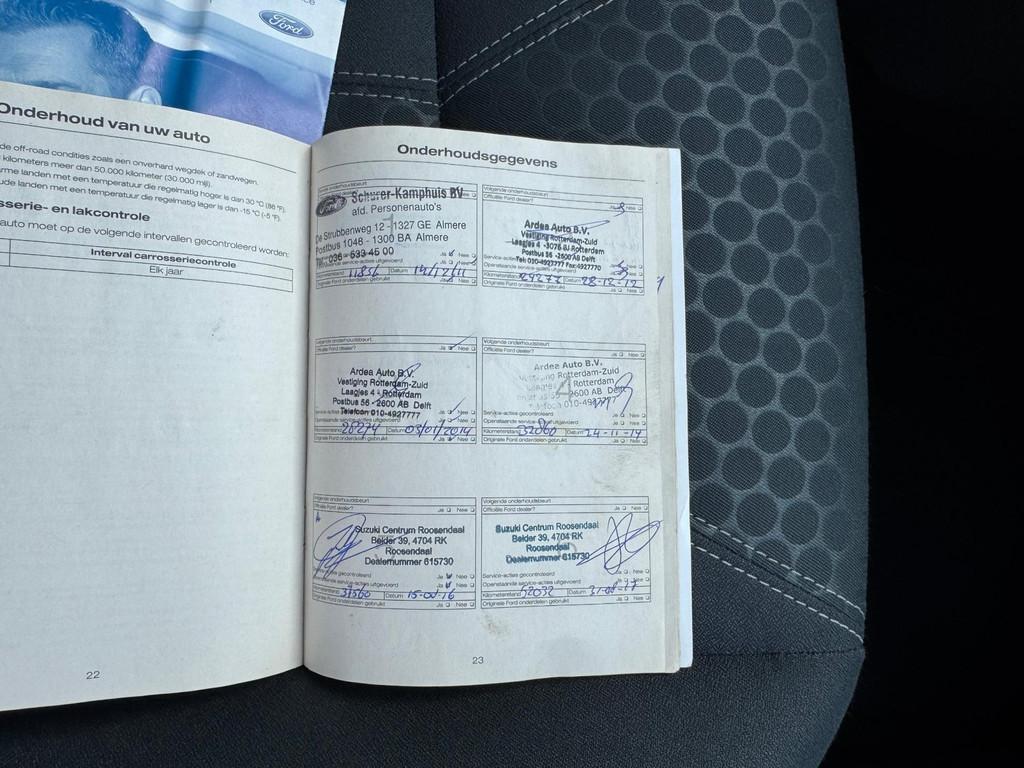 Ford
Onderhoud van uw auto
de off-road condities zoals een onverhard wegdek of zandwegen.
kilometers meer dan 50.000 kilometer (30.000 mijl).
rme landen met een temperatuur die regelmatig hoger is dan 30 °C (86 °F).
ude landen met een temperatuur die regelmatig lager is dan -15 °C (-5 °F).
sserie- en lakcontrole
auto moet op de volgende intervallen gecontroleerd worden:
Interval carrosseriecontrole
Elk jaar
22
Onderhoudsgegevens
Volgende onderhoudsbeurt
Ford
Schurer-Kamphuis BV
afd. Personenauto's
De Strubbenweg 12 - 1327 GE Almere
Postbus 1048 - 1300 BA Almere
Tel. 036 - 533 45 00
Ja Nee
Service-acties uitgevoerd Ja Nee
Kilometerstand 11856 Datum 14/12/11
Originele Ford onderdelen gebruikt Ja Nee
Volgende onderhoudsbeurt
Officiële Ford dealer?
Ja Nee
Ardea Auto B.V.
Vestiging Rotterdam-Zuid
Laagjes 4 - 3076 BJ Rotterdam
Postbus 56 - 2600 AB Delft
Tel: 010-4927777 Fax: 4927770
Openstaande service-acties uitgevoerd Ja Nee
Kilometerstand Datum 28-12-12
Originele Ford onderdelen gebruikt Ja Nee
Volgende onderhoudsbeurt
Officiële Ford dealer?
Ja Nee
Ardea Auto B.V.
Vestiging Rotterdam-Zuid
Laagjes 4 - Rotterdam
Postbus 56 - 2600 AB Delft
Telefoon 010-4927777
Ja Nee
Openstaande service-acties uitgevoerd Ja Nee
Kilometerstand 26274 Datum 03/01/2014
Originele Ford onderdelen gebruikt Ja Nee
Volgende onderhoudsbeurt
Officiële Ford dealer?
Ja Nee
Ardea Auto B.V.
Vestiging Rotterdam-Zuid
4
Laagjes 4 Rotterdam
2600 AB Delft
010-4927777
Service-acties gecontroleerd Ja Nee
Openstaande service-acties uitgevoerd Ja Nee
Kilometerstand 32060 Datum 24-11-14
Originele Ford onderdelen gebruikt Ja Nee
Volgende onderhoudsbeurt
Officiële Ford dealer?
Ja Nee
Suzuki Centrum Roosendaal
Belder 39, 4704 RK
Roosendaal
Dealernummer 615730
gecontroleerd Ja Nee
Openstaande service-acties uitgevoerd Ja Nee
Kilometerstand 37560 Datum 15-04-16
Originele Ford onderdelen gebruikt Ja Nee
Volgende onderhoudsbeurt
Officiële Ford dealer?
Ja Nee
Suzuki Centrum Roosendaal
Belder 39, 4704 RK
Roosendaal
Dealernummer 615730
Service-acties gecontroleerd Ja Nee
Openstaande service-acties uitgevoerd Ja Nee
Kilometerstand 52032 Datum
Originele Ford onderdelen gebruikt Ja Nee
23